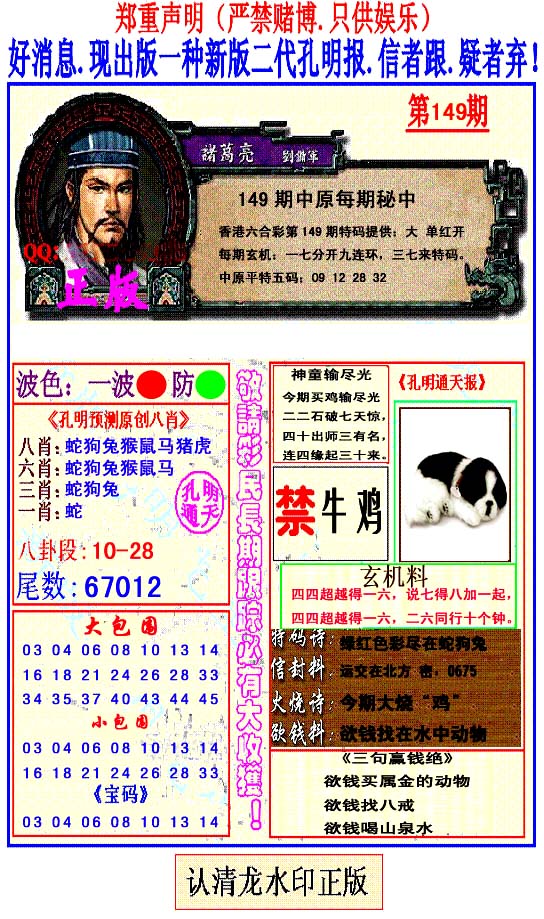 郑重声明（严禁赌博.只供娱乐）
好消息.现出版一种新版二代孔明报.信者跟.疑者弃！
第149期
諸葛亮 劉備軍
149 期中原每期秘中
香港六合彩第 149 期特码提供：大 单红开
每期玄机：一七分开九连环，三七来特码。
中原平特五码：09 12 28 32
QQ:
正版
波色：一波 防
《孔明预测原创八肖》
八肖：蛇狗兔猴鼠马猪虎
六肖：蛇狗兔猴鼠马
三肖：蛇狗兔
一肖：蛇
孔明
通天
八卦段：10-28
尾数：67012
大包围
03 04 06 08 10 13 14
16 18 21 24 26 28 33
34 35 37 40 43 44 45
小包围
03 04 06 08 10 13 14
16 18 21 24 26 28 33
《宝码》
03 04 06 08 10 13 14
敬請彩民長期跟踪必有大收獲！
神童输尽光
今期买鸡输尽光
二二石破七天惊，
四十出师三有名，
连四缘起三十来。
《孔明通天报》
禁牛鸡
玄机料
四四超越得一六，说七得八加一起，
四四超越得一六，二六同行十个钟。
特码诗：绿红色彩尽在蛇狗兔
信封料：运交在北方 密，0675
火烧诗：今期大烧“鸡”
欲钱料：欲钱找在水中动物
《三句赢钱绝》
欲钱买属金的动物
欲钱找八戒
欲钱喝山泉水
认清龙水印正版